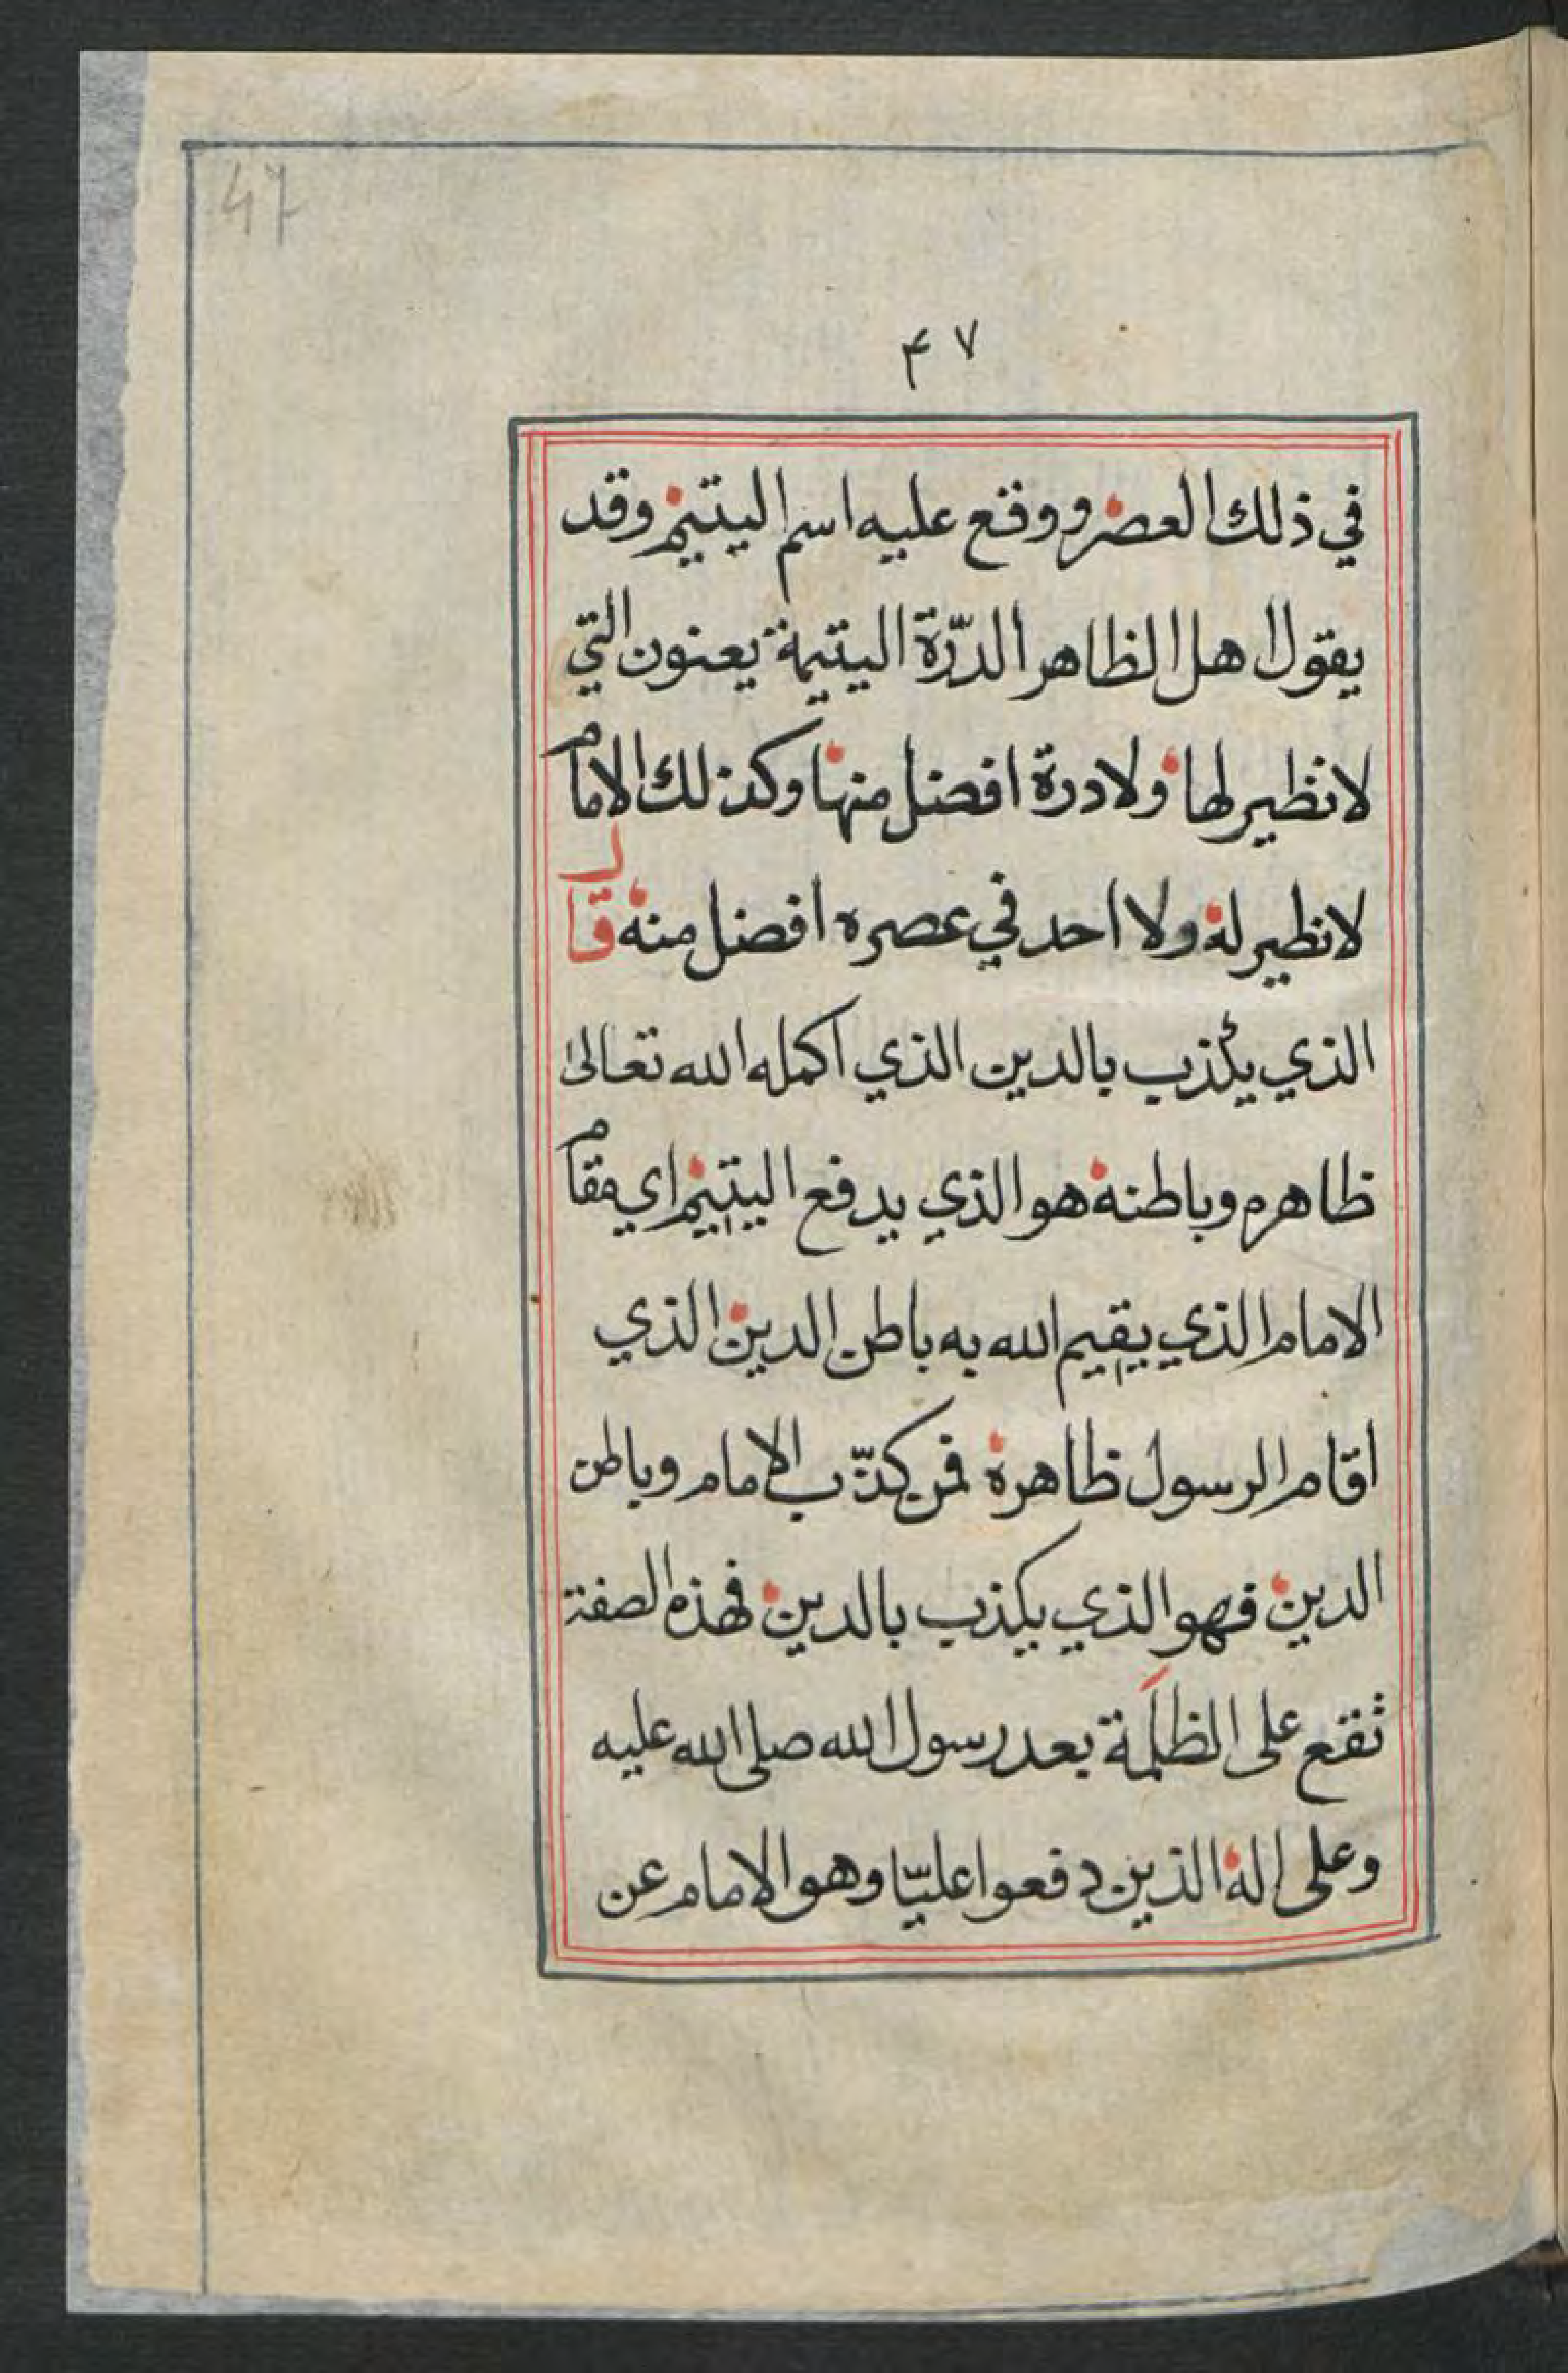 47
۴۷
في ذلك العصر ووقع عليه اسم اليتيم وقد
يقول اهل الظاهر الدّرّة اليتيمة يعنون التي
لا نظير لها ولا درة افضل منها وكذلك الامام
لا نظير له ولا احد في عصره افضل منه قال
الذي يكذب بالدين الذي اكمله الله تعالى
ظاهره وباطنه هو الذي يدفع اليتيم اي مقام
الامام الذي يقيم الله به باطن الدين الذي
اقام الرسول ظاهره فمن كذّب الامام وباطن
الدين فهو الذي يكذب بالدين فهذه الصفة
تقع على الظلَمة بعد رسول الله صلى الله عليه
وعلى اله الذين دفعوا عليّا وهو الامام عن